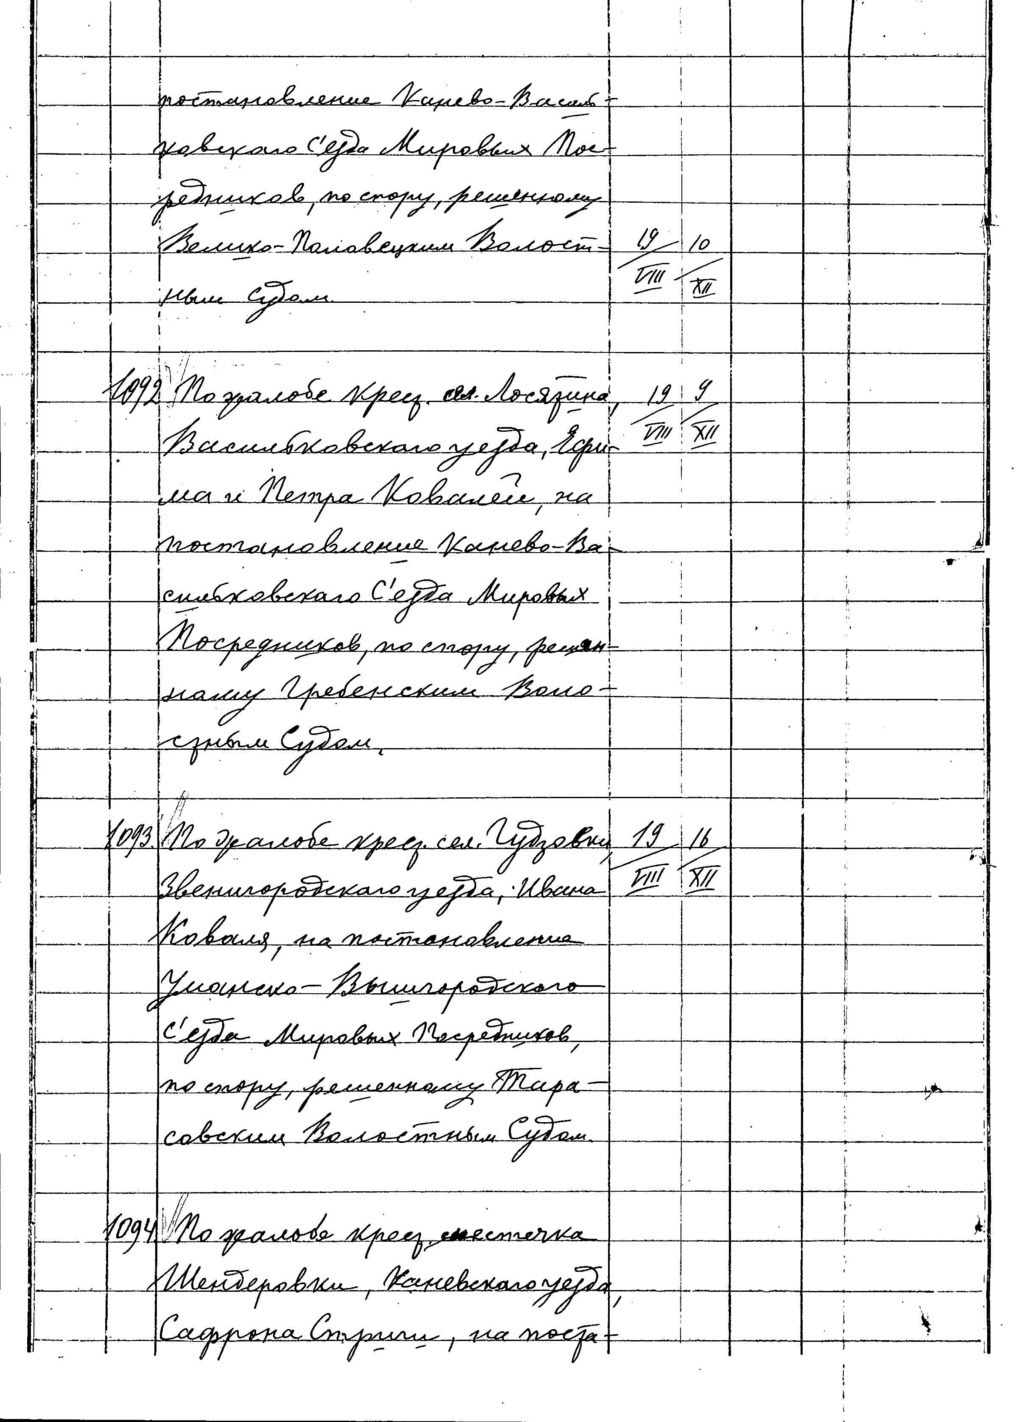 постановление Канево-Василь-
ковского С'езда Мировых Пос-
редников, по спору, решенному
Велико-Половецким Волост- 19 10
ным Судом. VIII XII
1092 По жалобе крест. сел. Лосятина, 19 9
Васильковского уезда, Ефи- VIII XII
ма и Петра Ковалей, на
постановление Канево-Ва-
сильковского С'езда Мировых
Посредников, по спору, решен-
ному Гребенским Воло-
стным Судом.
1093. По жалобе крест. сел. Гудзовки, 19 16
Звенигородского уезда, Ивана VIII XII
Коваля, на постановление
Уманско-Вышгородского
С'езда Мировых Посредников,
по спору, решенному Тара-
совским Волостным Судом.
1094 По жалобе крест. местечка
Шендеровки, Каневского уезда,
Сафрона Стриги, на поста-